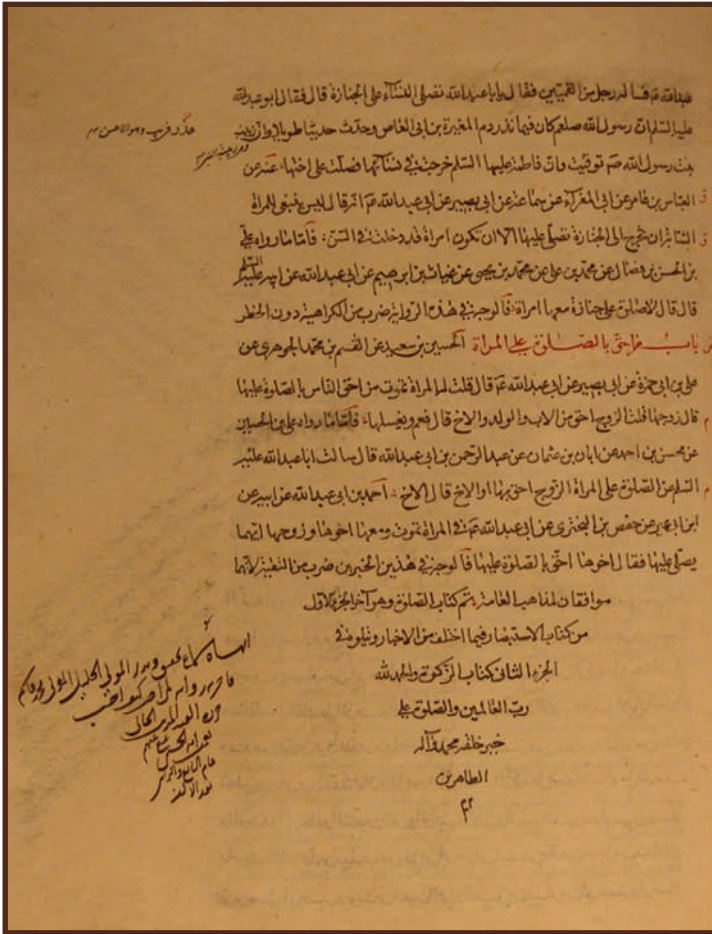 عبدالله عم فسأله رجل من القميين فقال يا باعبدالله تصلى النساء على الجنازة قال فقال ابو عبدالله
عليه السلم ان رسول الله صلعم كان فيما هدر دم المغيرة بن ابى العاص وحدث حديثا طويلا وان زينب
بنت رسول الله صم توفيت وان فاطمة عليها السلم خرجت فى نسائها فصلت على اختها عنه عن
العباس بن عامر عن ابى المغراء عن سماعة عن ابى بصير عن ابى عبدالله عم انه قال ليس ينبغى للمرأة
الشابة ان تخرج الى الجنازة تصلى عليها الا ان تكون امرأة قد دخلت فى السن فأما ما رواه على
بن الحسن بن فضال عن محمد بن على عن محمد بن يحيى عن غياث بن ابرهيم عن ابى عبدالله عن ابيه عليهم السلم
قال قال لا صلوة على جنازة معها امرأة فالوجه فى هذه الرواية ضرب من الكراهية دون الحظر
باب من احق بالصلوة على المرأة الحسين بن سعيد عن القسم بن محمد الجوهرى عن
على بن ابى حمزة عن ابى بصير عن ابى عبدالله عم قال قلت له المرأة تموت من احق الناس بالصلوة عليها
قال زوجها قلت الزوج احق من الاب والولد والاخ قال نعم ويغسلها فأما ما رواه على بن الحسين
عن محسن بن احمد عن ابان بن عثمان عن عبد الرحمن بن ابى عبدالله قال سالت ابا عبدالله عليه
السلم عن الصلوة على المرأة الزوج احق بها او الاخ قال الاخ احمد بن ابى عبدالله عن ابيه عن
ابن ابى عمير عن حفص بن البخترى عن ابى عبدالله عم فى المرأة تموت ومعها اخوها وزوجها ايهما
يصلى عليها فقال اخوها احق بالصلوة عليها فالوجه فى هذين الخبرين ضرب من التقية لانهما
موافقان لمذاهب العامة تم كتاب الصلوة وهو آخر الجزء الاول
من كتاب الاستبصار فيما اختلف من الاخبار ويتلوه فى
الجزء الثانى كتاب الزكوة والحمد لله
رب العالمين والصلوة على
خير خلقه محمد وآله
الطاهرين
انهاه سماع تحقيق وتدبر المولى الجليل المولى محمد قاسم